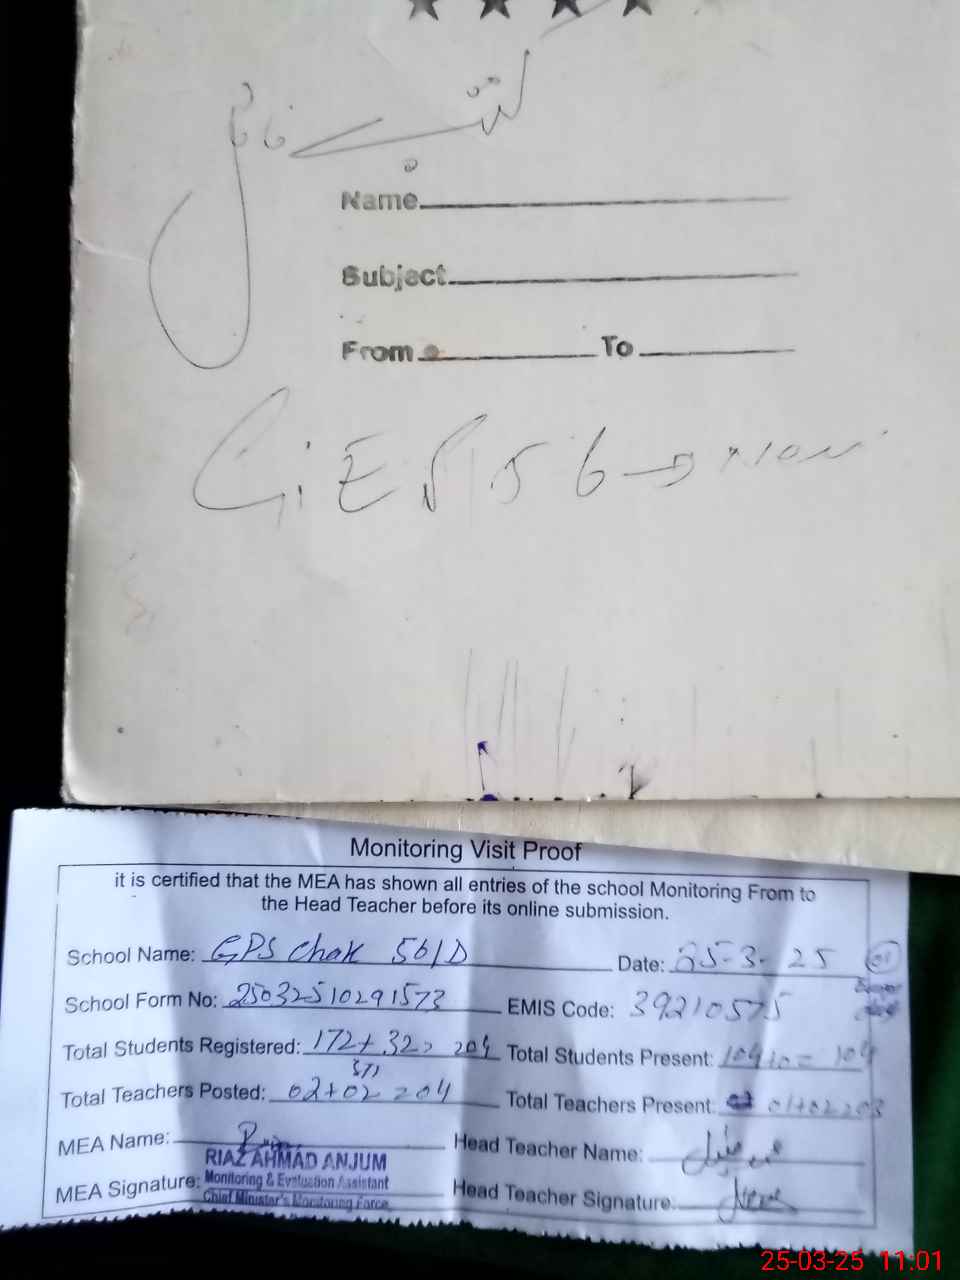 Name
Subject
From To
Monitoring Visit Proof
it is certified that the MEA has shown all entries of the school Monitoring From to
the Head Teacher before its online submission.
School Name: GPS Chak 56/D Date: 25-3-25 01
School Form No: 25032510291573 EMIS Code: 39210575
Total Students Registered: 172+32= 204 Total Students Present: 104+0= 104
Total Teachers Posted: 02+02=04 Total Teachers Present: 01+02=03
MEA Name: Head Teacher Name:
RIAZ AHMAD ANJUM
MEA Signature: Monitoring & Evaluation Assistant Head Teacher Signature:
Chief Minister's Monitoring Force
25-03-25 11:01